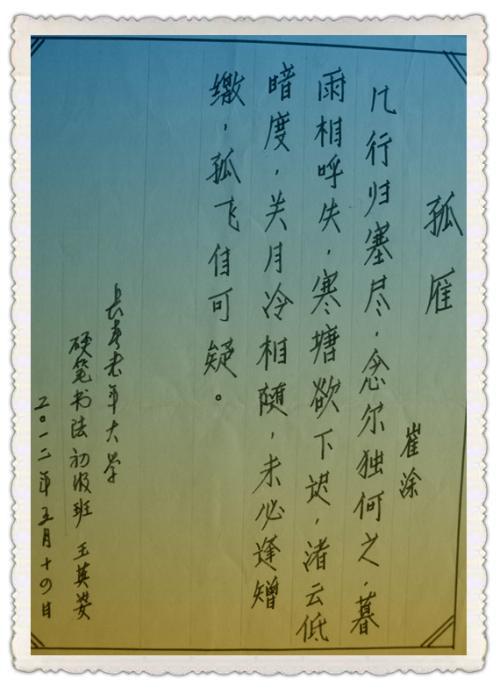 孤雁
崔涂
几行归塞尽，念尔独何之，暮
雨相呼失，寒塘欲下迟，渚云低
暗度，关月冷相随，未必逢矰
缴，孤飞自可疑。
长青老年大学
硬笔书法初级班 王英姿
二〇一二年五月十四日